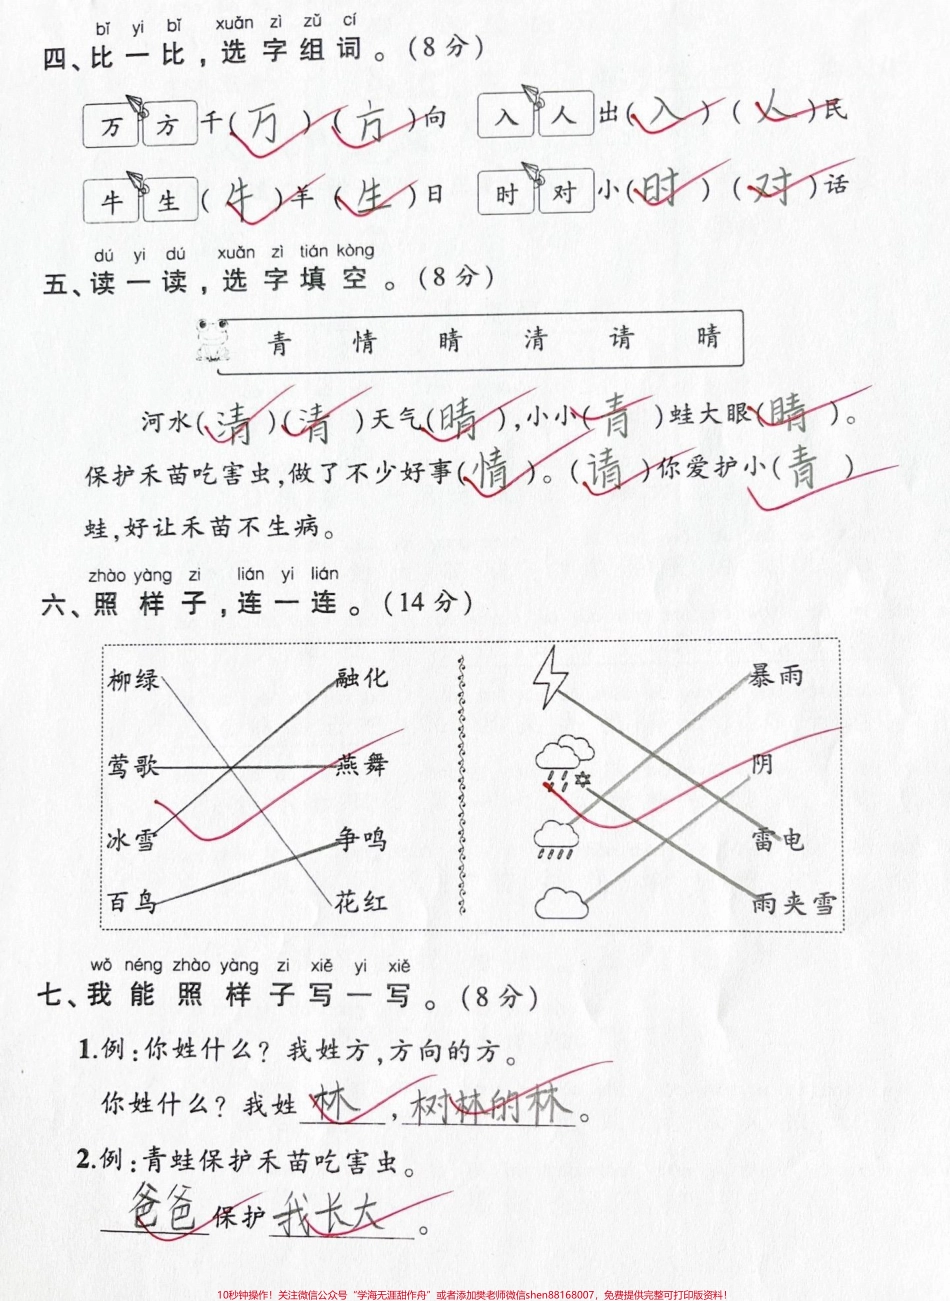 bǐ yi bǐ xuǎn zì zǔ cí
四、比一比，选字组词。（8分）
万 方 千（万）（方）向 入 人 出（入）（人）民
牛 生 （牛）羊（生）日 时 对 小（时）（对）话
dú yi dú xuǎn zì tián kòng
五、读一读，选字填空。（8分）
青 情 睛 清 请 晴
河水（清）（清）天气（晴），小小（青）蛙大眼（睛）。
保护禾苗吃害虫，做了不少好事（情）。（请）你爱护小（青）
蛙，好让禾苗不生病。
zhào yàng zi lián yi lián
六、照样子，连一连。（14分）
柳绿 融化 暴雨
莺歌 燕舞 阴
冰雪 争鸣 雷电
百鸟 花红 雨夹雪
wǒ néng zhào yàng zi xiě yi xiě
七、我能照样子写一写。（8分）
1.例：你姓什么？我姓方，方向的方。
你姓什么？我姓林，树林的林。
2.例：青蛙保护禾苗吃害虫。
爸爸保护我长大。
10秒钟操作！关注微信公众号“学海无涯甜作舟”或者添加樊老师微信shen88168007，免费提供完整可打印版资料！